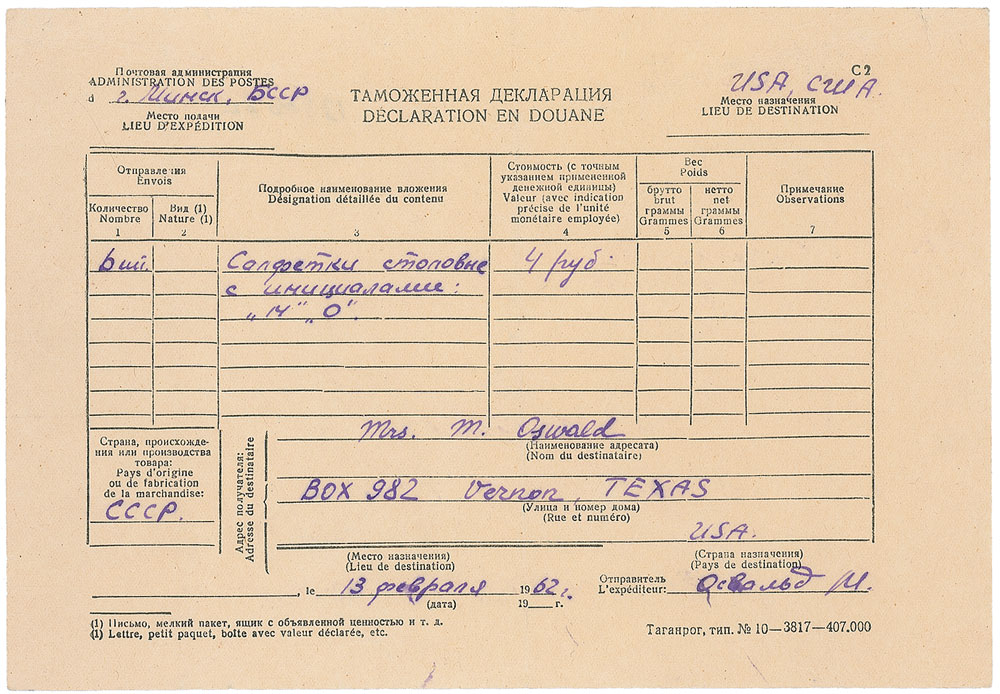 Почтовая администрация
ADMINISTRATION DES POSTES
d г. Минск, БССР
Место подачи
LIEU D'EXPÉDITION
ТАМОЖЕННАЯ ДЕКЛАРАЦИЯ
DÉCLARATION EN DOUANE
С2
USA, США.
Место назначения
LIEU DE DESTINATION
Отправления
Envois
Количество
Nombre
1
Вид (1)
Nature (1)
2
Подробное наименование вложения
Désignation détaillée du contenu
3
Стоимость (с точным
указанием примененной
денежной единицы)
Valeur (avec indication
précise de l'unité
monétaire employée)
4
Вес
Poids
брутто
brut
граммы
Grammes
5
нетто
net
граммы
Grammes
6
Примечание
Observations
7
6 шт. Салфетки столовые 4 руб.
с инициалами:
„М" „О".
Страна, происхожде-
ния или производства
товара:
Pays d'origine
ou de fabrication
de la marchandise:
СССР.
Адрес получателя:
Adresse du destinataire
Mrs. M. Oswald
(Наименование адресата)
(Nom du destinataire)
BOX 982 Vernon, TEXAS
(Улица и номер дома)
(Rue et numéro)
USA.
(Место назначения)
(Lieu de destination)
(Страна назначения)
(Pays de destination)
, le 13 февраля 1962 г.
(дата)
19 г.
Отправитель
L'expéditeur: Освальд М.
(1) Письмо, мелкий пакет, ящик с объявленной ценностью и т. д.
(1) Lettre, petit paquet, boîte avec valeur déclarée, etc.
Таганрог, тип. № 10—3817—407.000